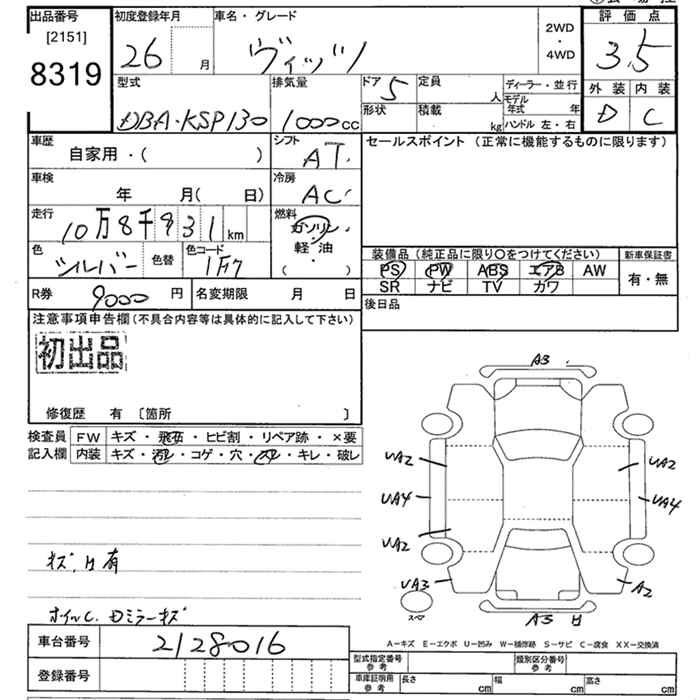 出品番号
[2151]
8319
初度登録年月
26 月
車名・グレード
ヴィッツ
2WD
・
4WD
評価点
3.5
外装 内装
D C
型式
DBA・KSP130
排気量
1000 cc
ドア 5
定員 人
形状
積載 kg
ディーラー・並行
モデル年式 年
ハンドル 左・右
車歴
自家用・( )
シフト
AT
セールスポイント (正常に機能するものに限ります)
車検
年 月( 日)
冷房
AC
走行
10万8千931 km
燃料
ガソリン
・
軽油
( )
色
シルバー
色替
色コード
1F7
装備品 (純正品に限り〇をつけてください)
PS PW ABS エアB AW
SR ナビ TV カワ
新車保証書
有・無
R券 9000 円
名変期限 月 日
後日品
注意事項申告欄 (不具合内容等は具体的に記入して下さい)
初出品
修復歴 有 〔箇所 〕
検査員
記入欄
FW キズ・飛石・ヒビ割・リペア跡・×要
内装 キズ・汚レ・コゲ・穴・スレ・キレ・破レ
キズ、H 有
ホイルC. Dミラーキズ
A3
UA2
UA2
UA4
UA4
UA2
UA3
A2
スペア
A3 H
A−キズ E−エクボ U−凹み W−補修跡 S−サビ C−腐食 XX−交換済
車台番号 2128016
登録番号
型式指定番号
参考
類別区分番号
参考
車庫証明用
参考
長さ cm
幅 cm
高さ cm